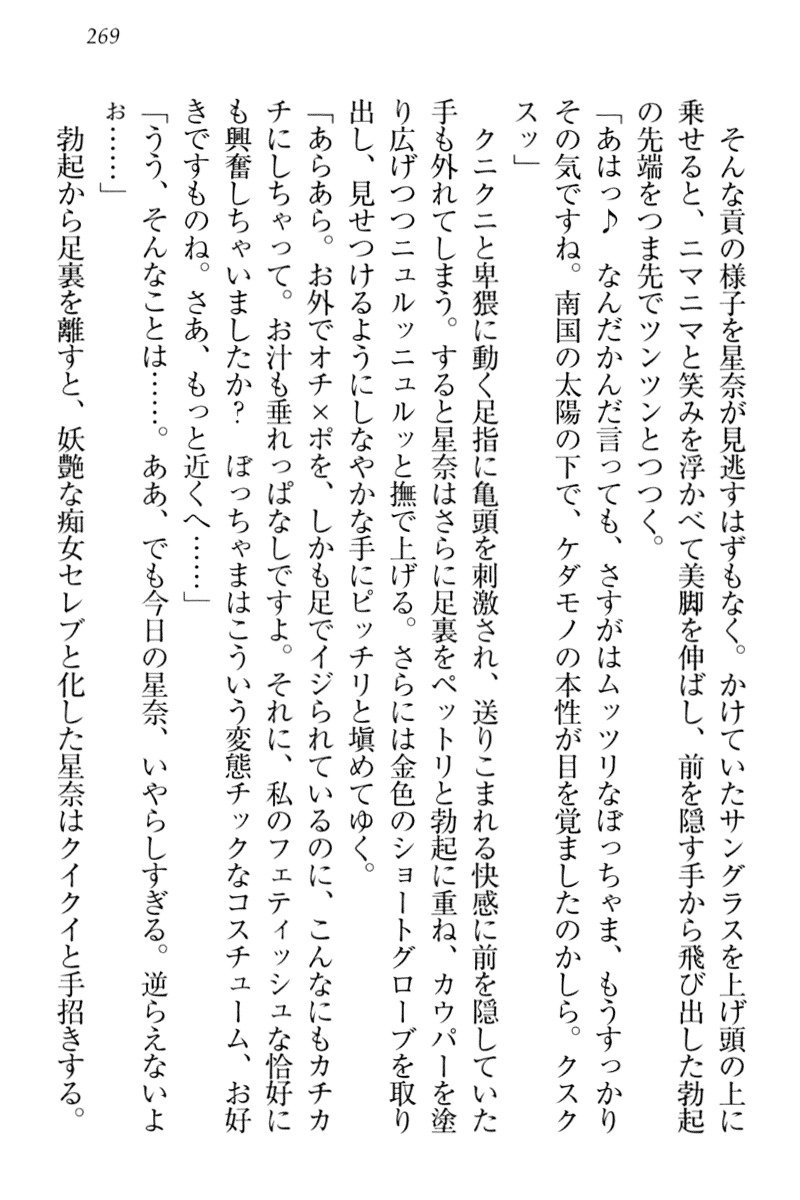 269
そんな貢の様子を星奈が見逃すはずもなく。かけていたサングラスを上げ頭の上に
乗せると、ニマニマと笑みを浮かべて美脚を伸ばし、前を隠す手から飛び出した勃起
の先端をつま先でツンツンとつつく。
「あはっ♪　なんだかんだ言っても、さすがはムッツリなぼっちゃま、もうすっかり
その気ですね。南国の太陽の下で、ケダモノの本性が目を覚ましたのかしら。クスク
スッ」
クニクニと卑猥に動く足指に亀頭を刺激され、送りこまれる快感に前を隠していた
手も外れてしまう。すると星奈はさらに足裏をペットリと勃起に重ね、カウパーを塗
り広げつつニュルッニュルッと撫で上げる。さらには金色のショートグローブを取り
出し、見せつけるようにしなやかな手にピッチリと塡めてゆく。
「あらあら。お外でオチ×ポを、しかも足でイジられているのに、こんなにもカチカ
チにしちゃって。お汁も垂れっぱなしですよ。それに、私のフェティッシュな恰好に
も興奮しちゃいましたか？　ぼっちゃまはこういう変態チックなコスチューム、お好
きですものね。さあ、もっと近くへ……」
「うう、そんなことは……。ああ、でも今日の星奈、いやらしすぎる。逆らえないよ
ぉ……」
勃起から足裏を離すと、妖艶な痴女セレブと化した星奈はクイクイと手招きする。